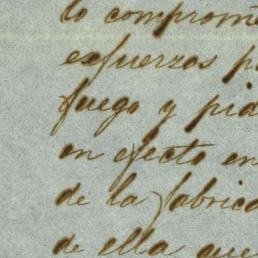 lo comprome
esfuerzos p
fuego y pid
en efecto en
de la fabrica
de ella que